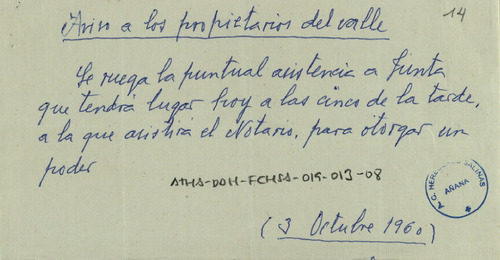 Aviso a los propietarios del valle
14
Se ruega la puntual asistencia a Junta
que tendrá lugar hoy a las cinco de la tarde,
a la que asistirá el Notario, para otorgar un
poder
ATHA-DAH-FCHSA-019-013-08
A.G. HERE SALINAS
AÑANA
(3 Octubre 1960)